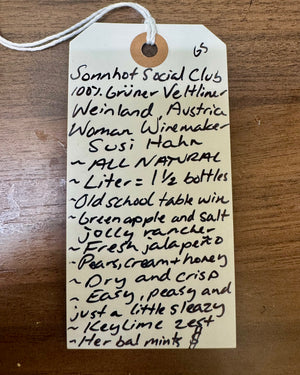 GS
Sonnhof Social Club
100% Grüner Veltliner
Weinland, Austria
Woman Winemaker
Susi Hahn
~ ALL NATURAL
~ Liter = 1 1/2 bottles
~ Old school table wine
~ Green apple and salt
jolly rancher
~ Fresh jalapeño
~ Pears, cream + honey
~ Dry and crisp
~ Easy, peasy and
just a little sleazy
~ Key lime zest
~ Herbal mints